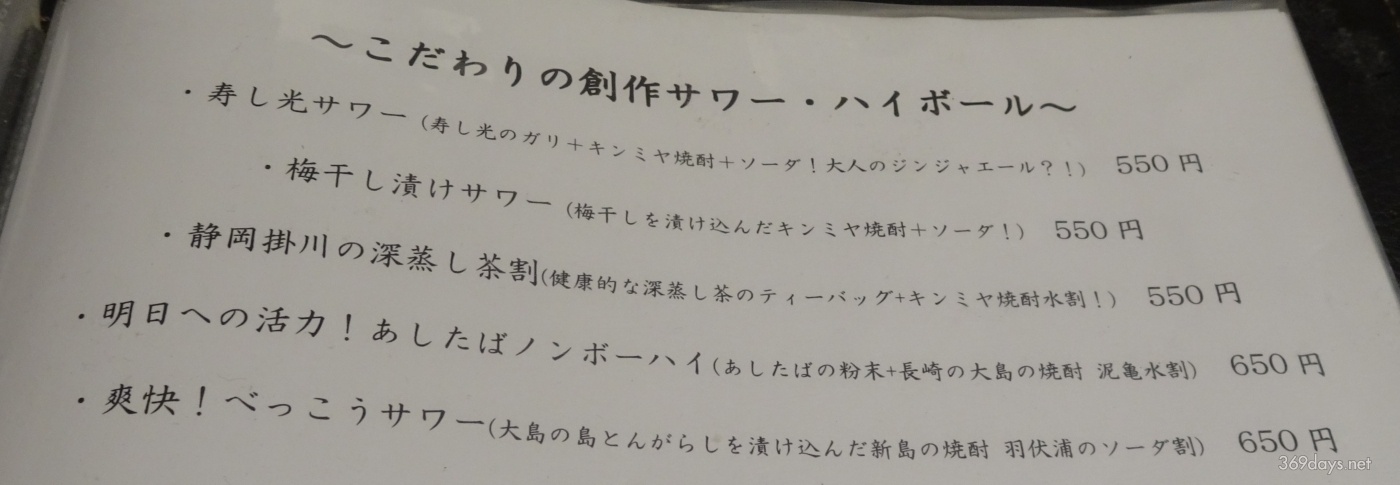 ～こだわりの創作サワー・ハイボール～
・寿し光サワー（寿し光のガリ＋キンミヤ焼酎＋ソーダ！大人のジンジャエール？！） 550 円
・梅干し漬けサワー（梅干しを漬け込んだキンミヤ焼酎＋ソーダ！） 550 円
・静岡掛川の深蒸し茶割(健康的な深蒸し茶のティーバッグ+キンミヤ焼酎水割！） 550 円
・明日への活力！あしたばノンボーハイ(あしたばの粉末+長崎の大島の焼酎 泥亀水割） 650 円
・爽快！べっこうサワー(大島の島とんがらしを漬け込んだ新島の焼酎 羽伏浦のソーダ割） 650 円
369days.net